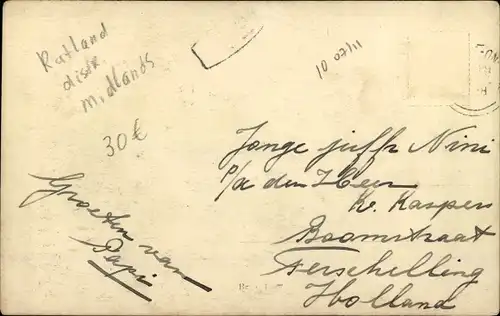 Ratland
distr
Midlands
30€
10 07/11
Jonge juffr Nini
p/a den Heer
K. Kaspers
Boomstraat
Terschelling
Holland
Groeten van
Papi